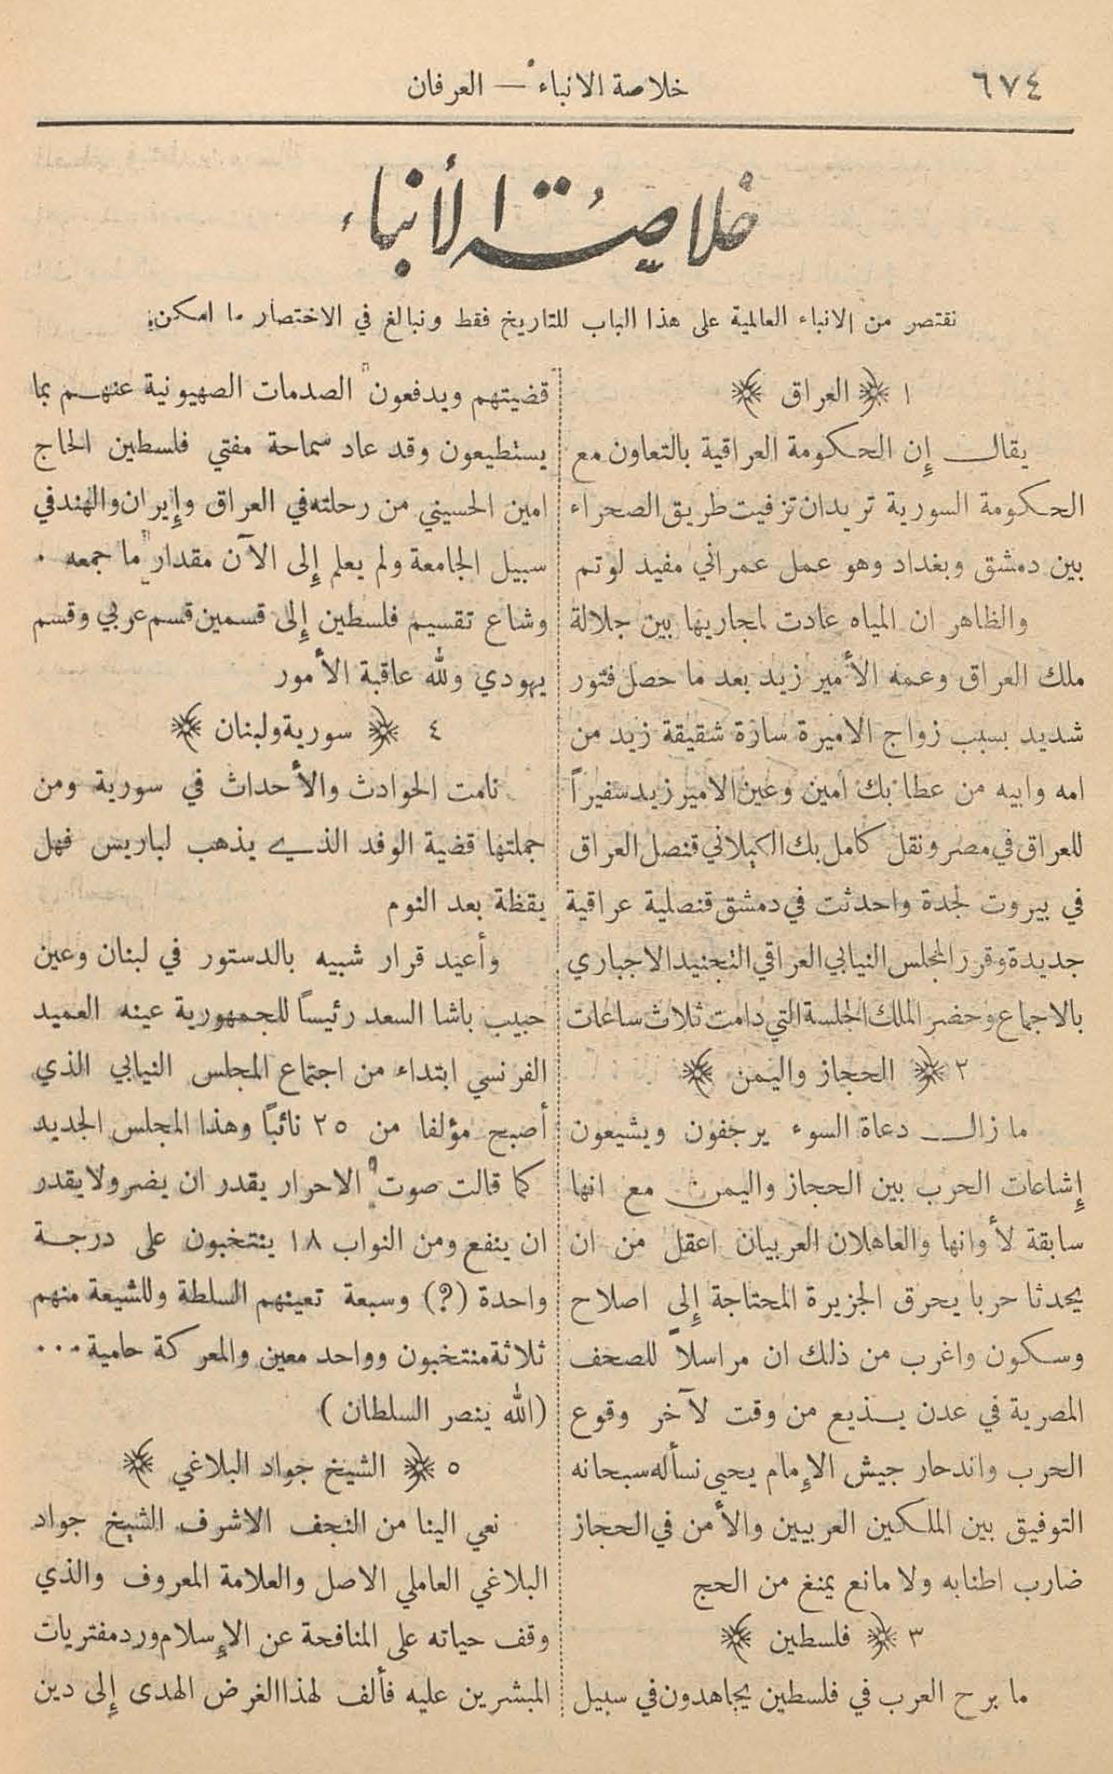 ٦٧٤
خلاصة الانباء — العرفان
خلاصة الأنباء
نقتصر من الانباء العالمية على هذا الباب للتاريخ فقط ونبالغ في الاختصار ما امكن
١ ﴿ العراق ﴾
يقال إن الحكومة العراقية بالتعاون مع
الحكومة السورية تريدان تزفيت طريق الصحراء
بين دمشق وبغداد وهو عمل عمراني مفيد لو تم
والظاهر ان المياه عادت لمجاريها بين جلالة
ملك العراق وعمه الأمير زيد بعد ما حصل فتور
شديد بسبب زواج الاميرة سارة شقيقة زيد من
امه وابيه من عطا بك امين وعين الامير زيد سفيراً
للعراق في مصر ونقل كامل بك الكيلاني قنصل العراق
في بيروت لجدة واحدثت في دمشق قنصلية عراقية
جديدة وقرر المجلس النيابي العراقي التجنيد الاجباري
بالاجماع وحضر الملك الجلسة التي دامت ثلاث ساعات
٢ ﴿ الحجاز واليمن ﴾
ما زال دعاة السوء يرجفون ويشيعون
إشاعات الحرب بين الحجاز واليمن مع انها
سابقة لأوانها والعاهلان العربيان اعقل من ان
يحدثا حربا يحرق الجزيرة المحتاجة إلى اصلاح
وسكون واغرب من ذلك ان مراسلاً للصحف
المصرية في عدن يذيع من وقت لآخر وقوع
الحرب واندحار جيش الإمام يحيى نسأله سبحانه
التوفيق بين الملكين العربيين والأمن في الحجاز
ضارب اطنابه ولا مانع يمنع من الحج
٣ ﴿ فلسطين ﴾
ما برح العرب في فلسطين يجاهدون في سبيل
قضيتهم ويدفعون الصدمات الصهيونية عنهم بما
يستطيعون وقد عاد سماحة مفتي فلسطين الحاج
امين الحسيني من رحلته في العراق وإيران والهند في
سبيل الجامعة ولم يعلم إلى الآن مقدار ما جمعه .
وشاع تقسيم فلسطين إلى قسمين قسم عربي وقسم
يهودي ولله عاقبة الأمور
٤ ﴿ سورية ولبنان ﴾
نامت الحوادث والأحداث في سورية ومن
جملتها قضية الوفد الذي يذهب لباريس فهل
يقظة بعد النوم
وأعيد قرار شبيه بالدستور في لبنان وعين
حبيب باشا السعد رئيساً للجمهورية عينه العميد
الفرنسي ابتداء من اجتماع المجلس النيابي الذي
أصبح مؤلفا من ٢٥ نائباً وهذا المجلس الجديد
كما قالت صوت الاحرار يقدر ان يضر ولا يقدر
ان ينفع ومن النواب ١٨ ينتخبون على درجة
واحدة (؟) وسبعة تعينهم السلطة وللشيعة منهم
ثلاثة منتخبون وواحد معين والمعركة حامية ...
(الله ينصر السلطان)
٥ ﴿ الشيخ جواد البلاغي ﴾
نعي الينا من النجف الاشرف الشيخ جواد
البلاغي العاملي الاصل والعلامة المعروف والذي
وقف حياته على المنافحة عن الإسلام ورد مفتريات
المبشرين عليه فألف لهذا الغرض الهدى إلى دين